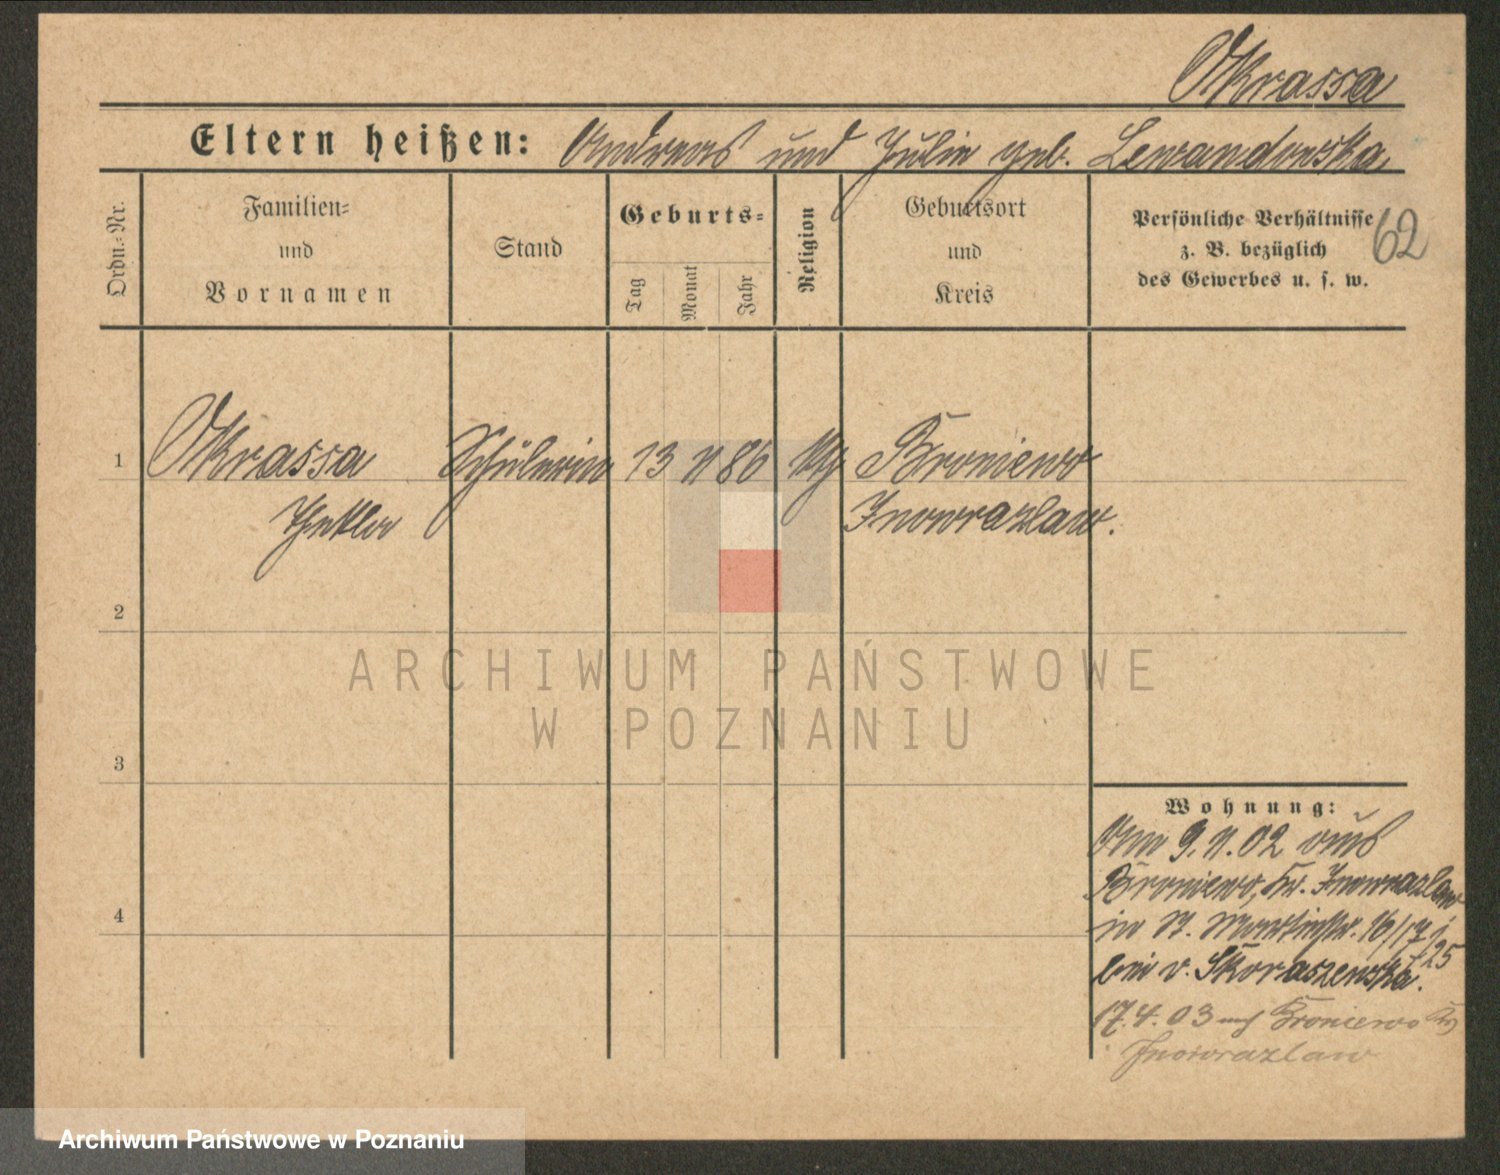 Okrassa
Eltern heißen: Andreas und Julie geb. Lewandowska
Ordn.-Nr.
Familien-
und
Vornamen
Stand
Geburts-
Tag
Monat
Jahr
Religion
Geburtsort
und
Kreis
Persönliche Verhältnisse
z. B. bezüglich
des Gewerbes u. s. w.
62
1 Okrassa Schülerin 13 11 86 kth Broniewo
Thekla Inowrazlaw.
2
3
4
ARCHIWUM PAŃSTWOWE
W POZNANIU
Wohnung:
Am 9.11.02 aus
Broniewo, Kr. Inowrazlaw
in St. Martinstr. 16/17
25
bei v. Skoraszewska.
17.4.03 nach Broniewo Kr
Inowrazlaw
Archiwum Państwowe w Poznaniu